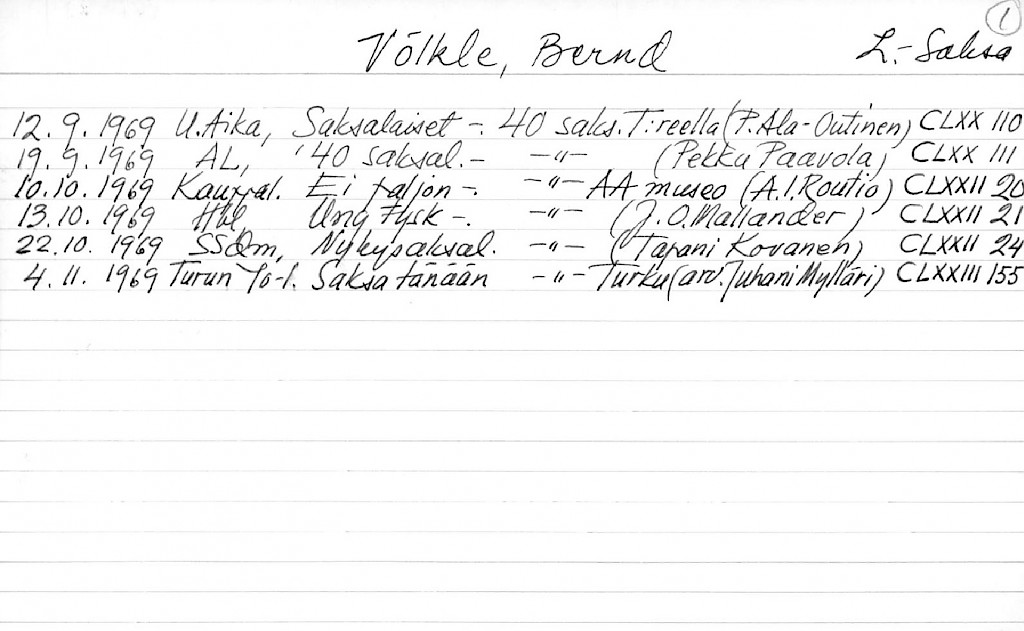 1
Völkle, Bernd L.-Saksa
12.9.1969 U.Aika, Saksalaiset -. 40 saks. T:reella (P.Ala-Outinen) CLXX 110
19.9.1969 AL, '40 saksal. - -"- (Pekka Paavola) CLXX 111
10.10.1969 Kauppal. Ei paljon -. -"- AA museo (A.I.Routio) CLXXII 20
13.10.1969 Hbl, Ung tysk -. -"- (J.O.Mallander) CLXXII 21
22.10.1969 SSdm, Nykysaksal. -"- (Tapani Kovanen) CLXXII 24
4.11.1969 Turun Yo-l. Saksa tänään -"- Turku (arv. Juhani Mylläri) CLXXIII 155